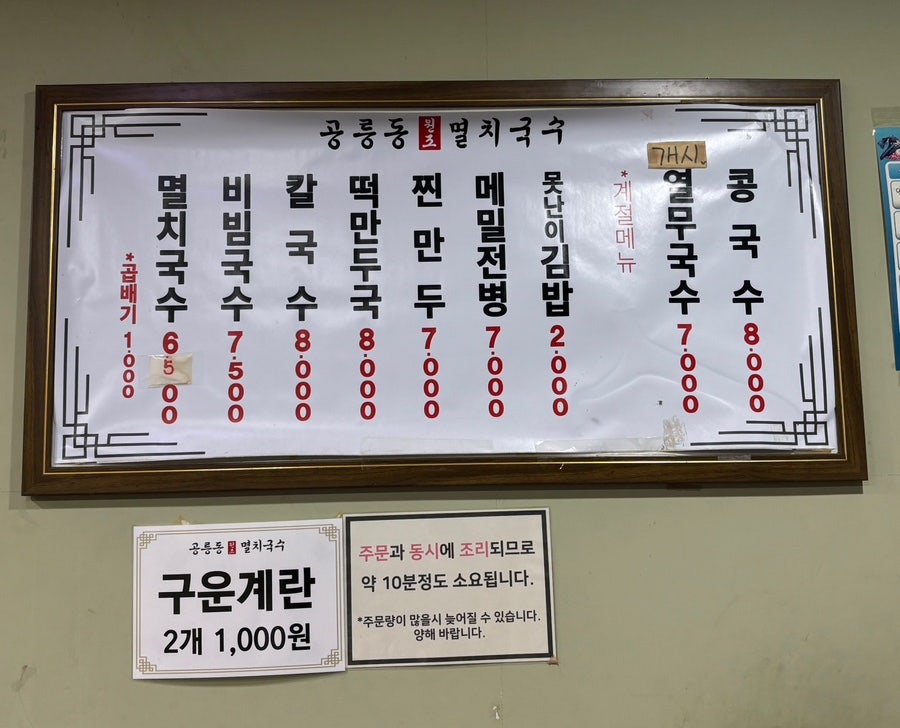 공릉동 원조 멸치국수
멸치국수 6.500
*곱배기 1.000
비빔국수 7.500
칼국수 8.000
떡만두국 8.000
찐만두 7.000
메밀전병 7.000
못난이김밥 2.000
*계절메뉴
개시.
열무국수 7.000
콩국수 8.000
공릉동 원조 멸치국수
구운계란
2개 1,000원
주문과 동시에 조리되므로
약 10분정도 소요됩니다.
*주문량이 많을시 늦어질 수 있습니다.
양해 바랍니다.